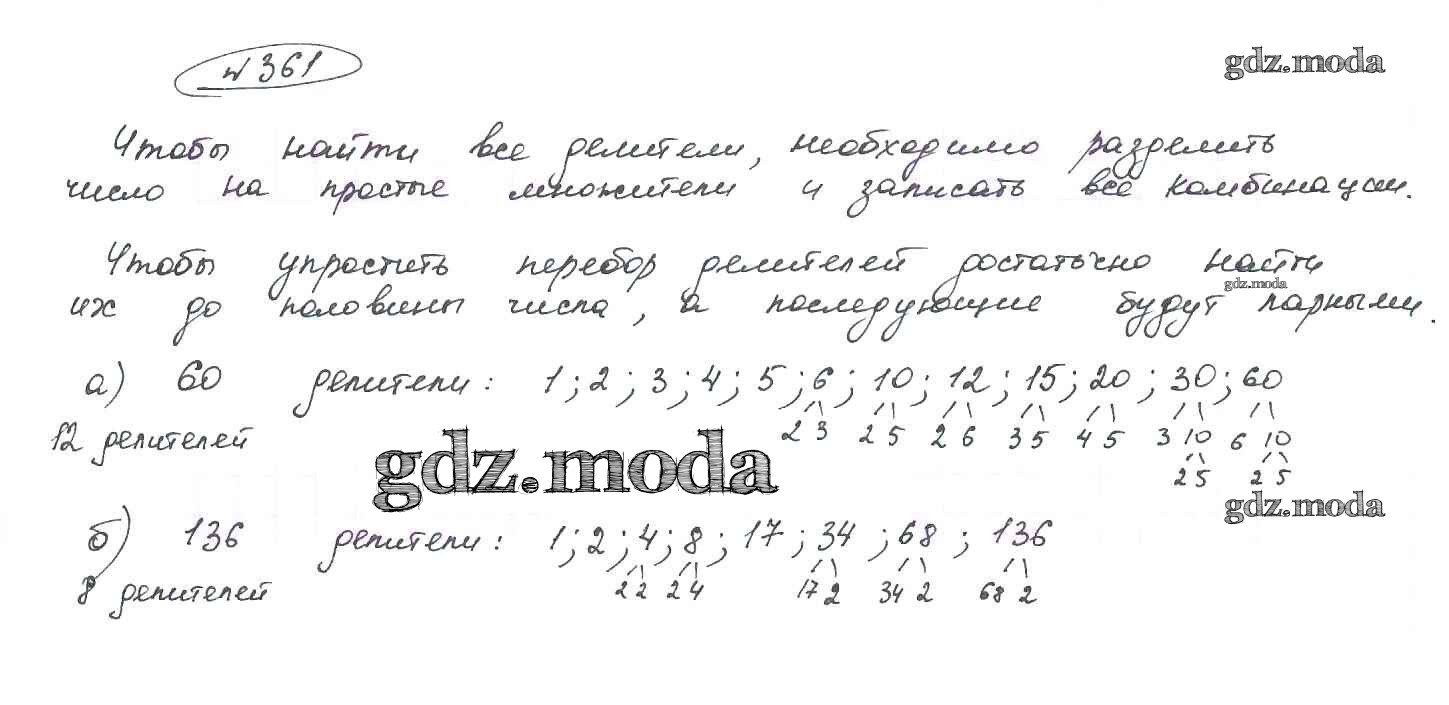 №361
gdz.moda
Чтобы найти все делители, необходимо разделить
число на простые множители и записать все комбинации.
Чтобы упростить перебор делителей достаточно найти
gdz.moda
их до половины числа, а последующие будут парными.
а) 60 делители: 1; 2; 3; 4; 5; 6; 10; 12; 15; 20; 30; 60
2 3 2 5 2 6 3 5 4 5 3 10 6 10
12 делителей
2 5 2 5
gdz.moda
gdz.moda
б) 136 делители: 1; 2; 4; 8; 17; 34; 68; 136
8 делителей 2 2 2 4 17 2 34 2 68 2